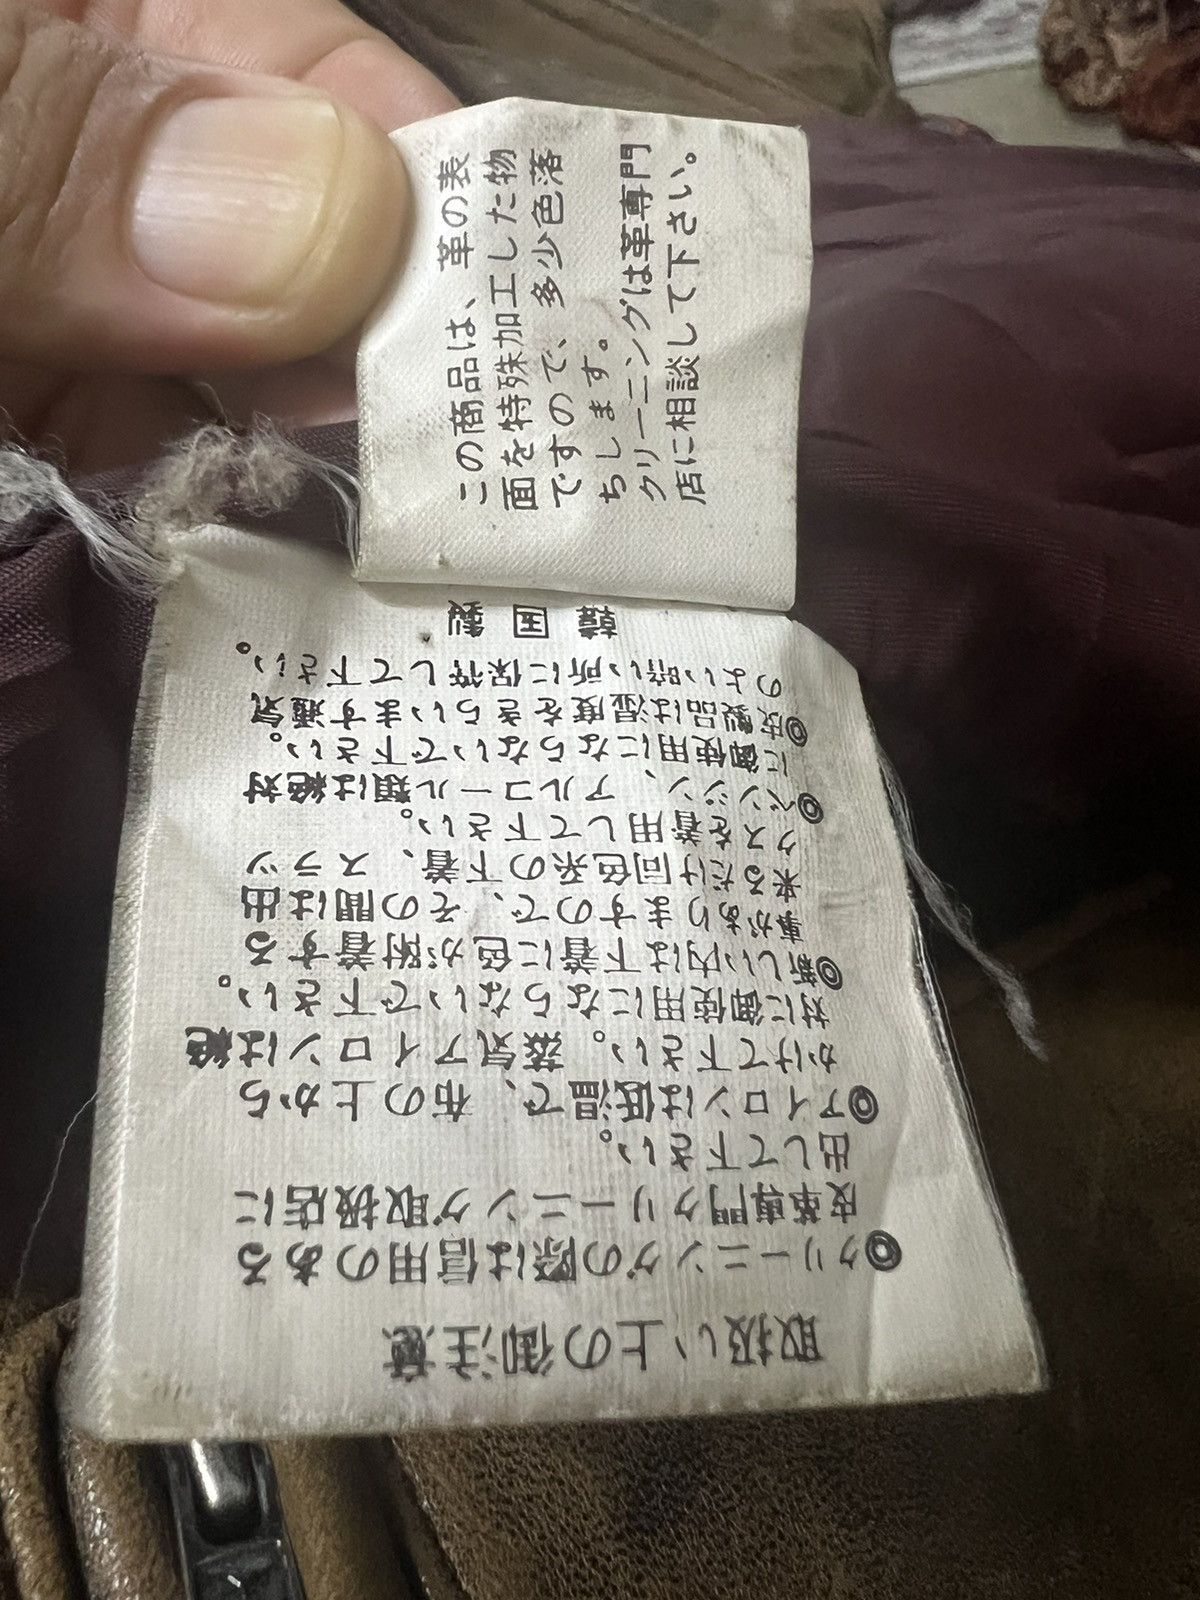 この商品は、革の表
面を特殊加工した物
ですので、多少色落
ちします。
クリーニングは革専門
店に相談して下さい。
取扱い上の御注意
◎クリーニングの際は信用のある
皮革専門クリーニング取扱店に
出して下さい。
◎アイロンは低温で、布の上から
かけて下さい。蒸気アイロンは絶
対に御使用にならないで下さい。
◎新しい内は下着に色が附着する
事がありますので、その間は出
来るだけ同色系の下着、スラッ
クスを着用して下さい。
◎ベンジン、アルコール類は絶対
に御使用にならないで下さい。
◎皮製品は湿度をきらいます通気
のよい暗い所に保管して下さい。
韓国製